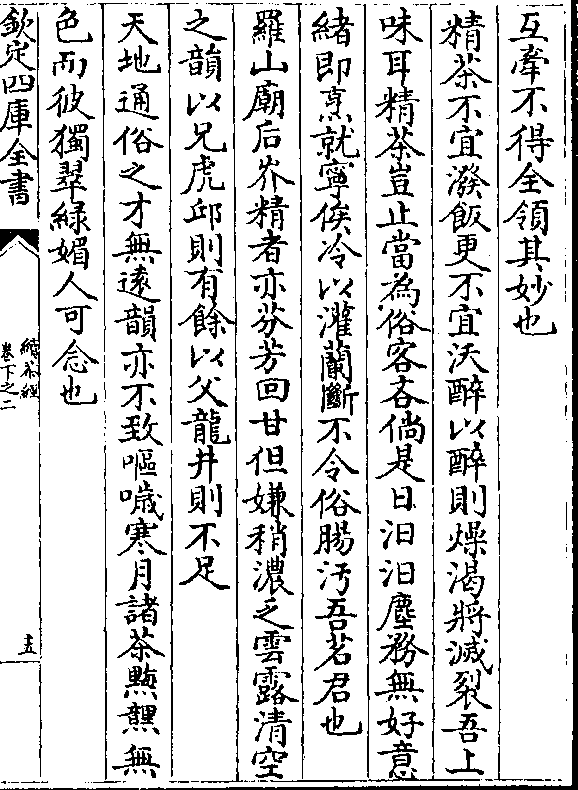 互牽不得全領其妙也
精茶不宜潑飯更不宜沃醉以醉則燥渴將滅裂吾上
味耳精茶豈止當為俗客吝倘是日汨汨塵務無好意
緒即烹就寧俟冷以灌蘭斷不令俗腸汚吾茗君也
羅山廟后岕精者亦芬芳回甘但嫌稍濃乏雲露清空
之韻以兄虎邱則有餘以父龍井則不足
天地通俗之才無逺韻亦不致嘔噦寒月諸茶黲黮無
色而彼獨翠緑媚人可念也
欽定四庫全書
續茶經
卷下之二
十五